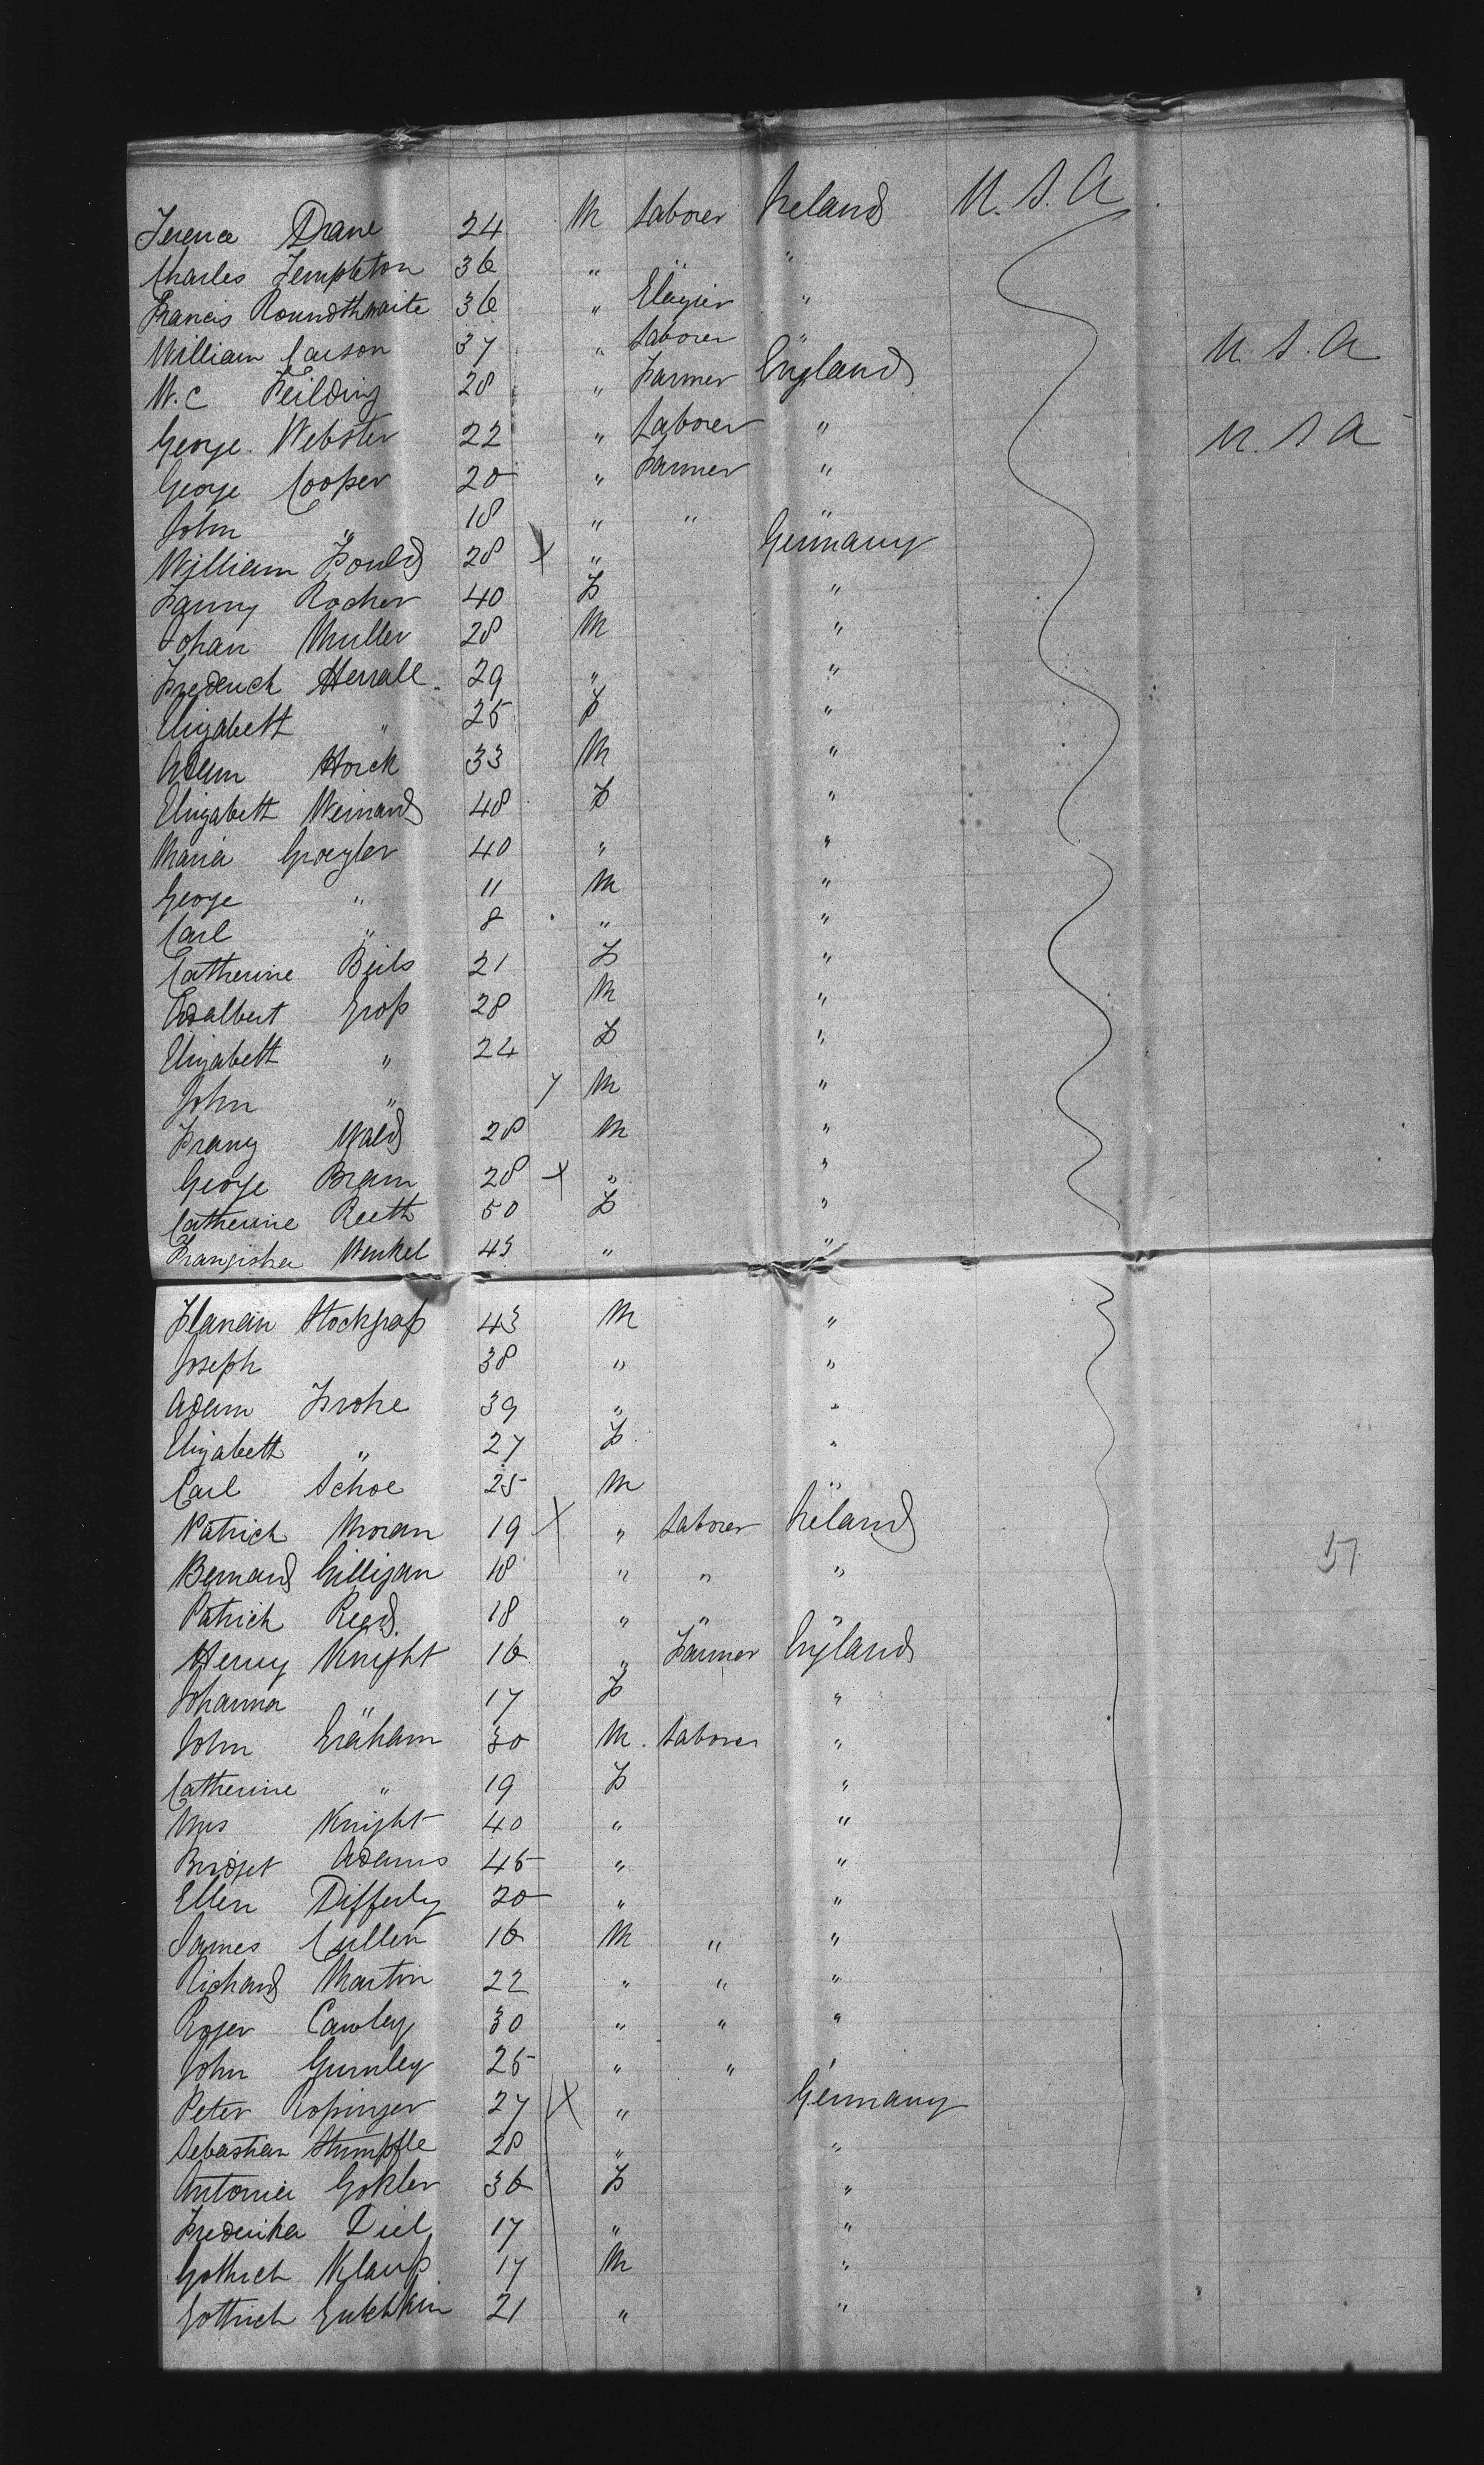 Terence Drane 24 M Laborer Ireland U.S.A.
Charles Templeton 36 " " "
Francis Roundthwaite 36 " "
William Carson 37 " Laborer " U.S.A
W.C Feilding 28 " Farmer England
George Webster 22 " Laborer " U.S.A
George Cooper 20 " Farmer "
John " 18 " " "
William Fould 28 X " Germany
Fanny Rocher 40 F "
Johan Muller 28 M "
Frederick Herrall 29 " "
Elizabeth " 25 F "
Adam Horck 33 M "
Elizabeth Weinand 48 F "
Maria Groegler 40 " "
George " 11 M "
Carl " 8 " "
Catherine Beils 21 F "
Adalbert Groß 28 M "
Elizabeth " 24 F "
John " M "
Franz Wald 28 M "
George Bram 28 X " "
Catherine Reeth 50 F "
Franziska Wenkel 43 " "
Stockgraß 43 M "
Joseph 38 " "
Adam Frohe 39 " "
Elizabeth " 27 F "
Carl Schoe 25 M "
Patrick Moran 19 X " Laborer Ireland
Bernard Gilligan 18 " " " 51
Patrick Reed. 18 " " "
Henry Knight 16 " Farmer England
Johanna " 17 F "
John Graham 30 M Laborer "
Catherine " 19 F "
Mrs Knight 40 " "
Bridget Adams 45 " "
Ellen Differly 20 " "
James Cullen 16 M " "
Richard Martin 22 " " "
Roger Cawley 30 " " "
John Gurnley 25 " " "
Peter Roßinger 27 X " Germany
Sebastian Stumpfle 28 " "
Antonia Gokler 36 F "
Frederika Diel 17 " "
Gottrich Klauß 17 M "
Gottrich Gutchkin 21 " "